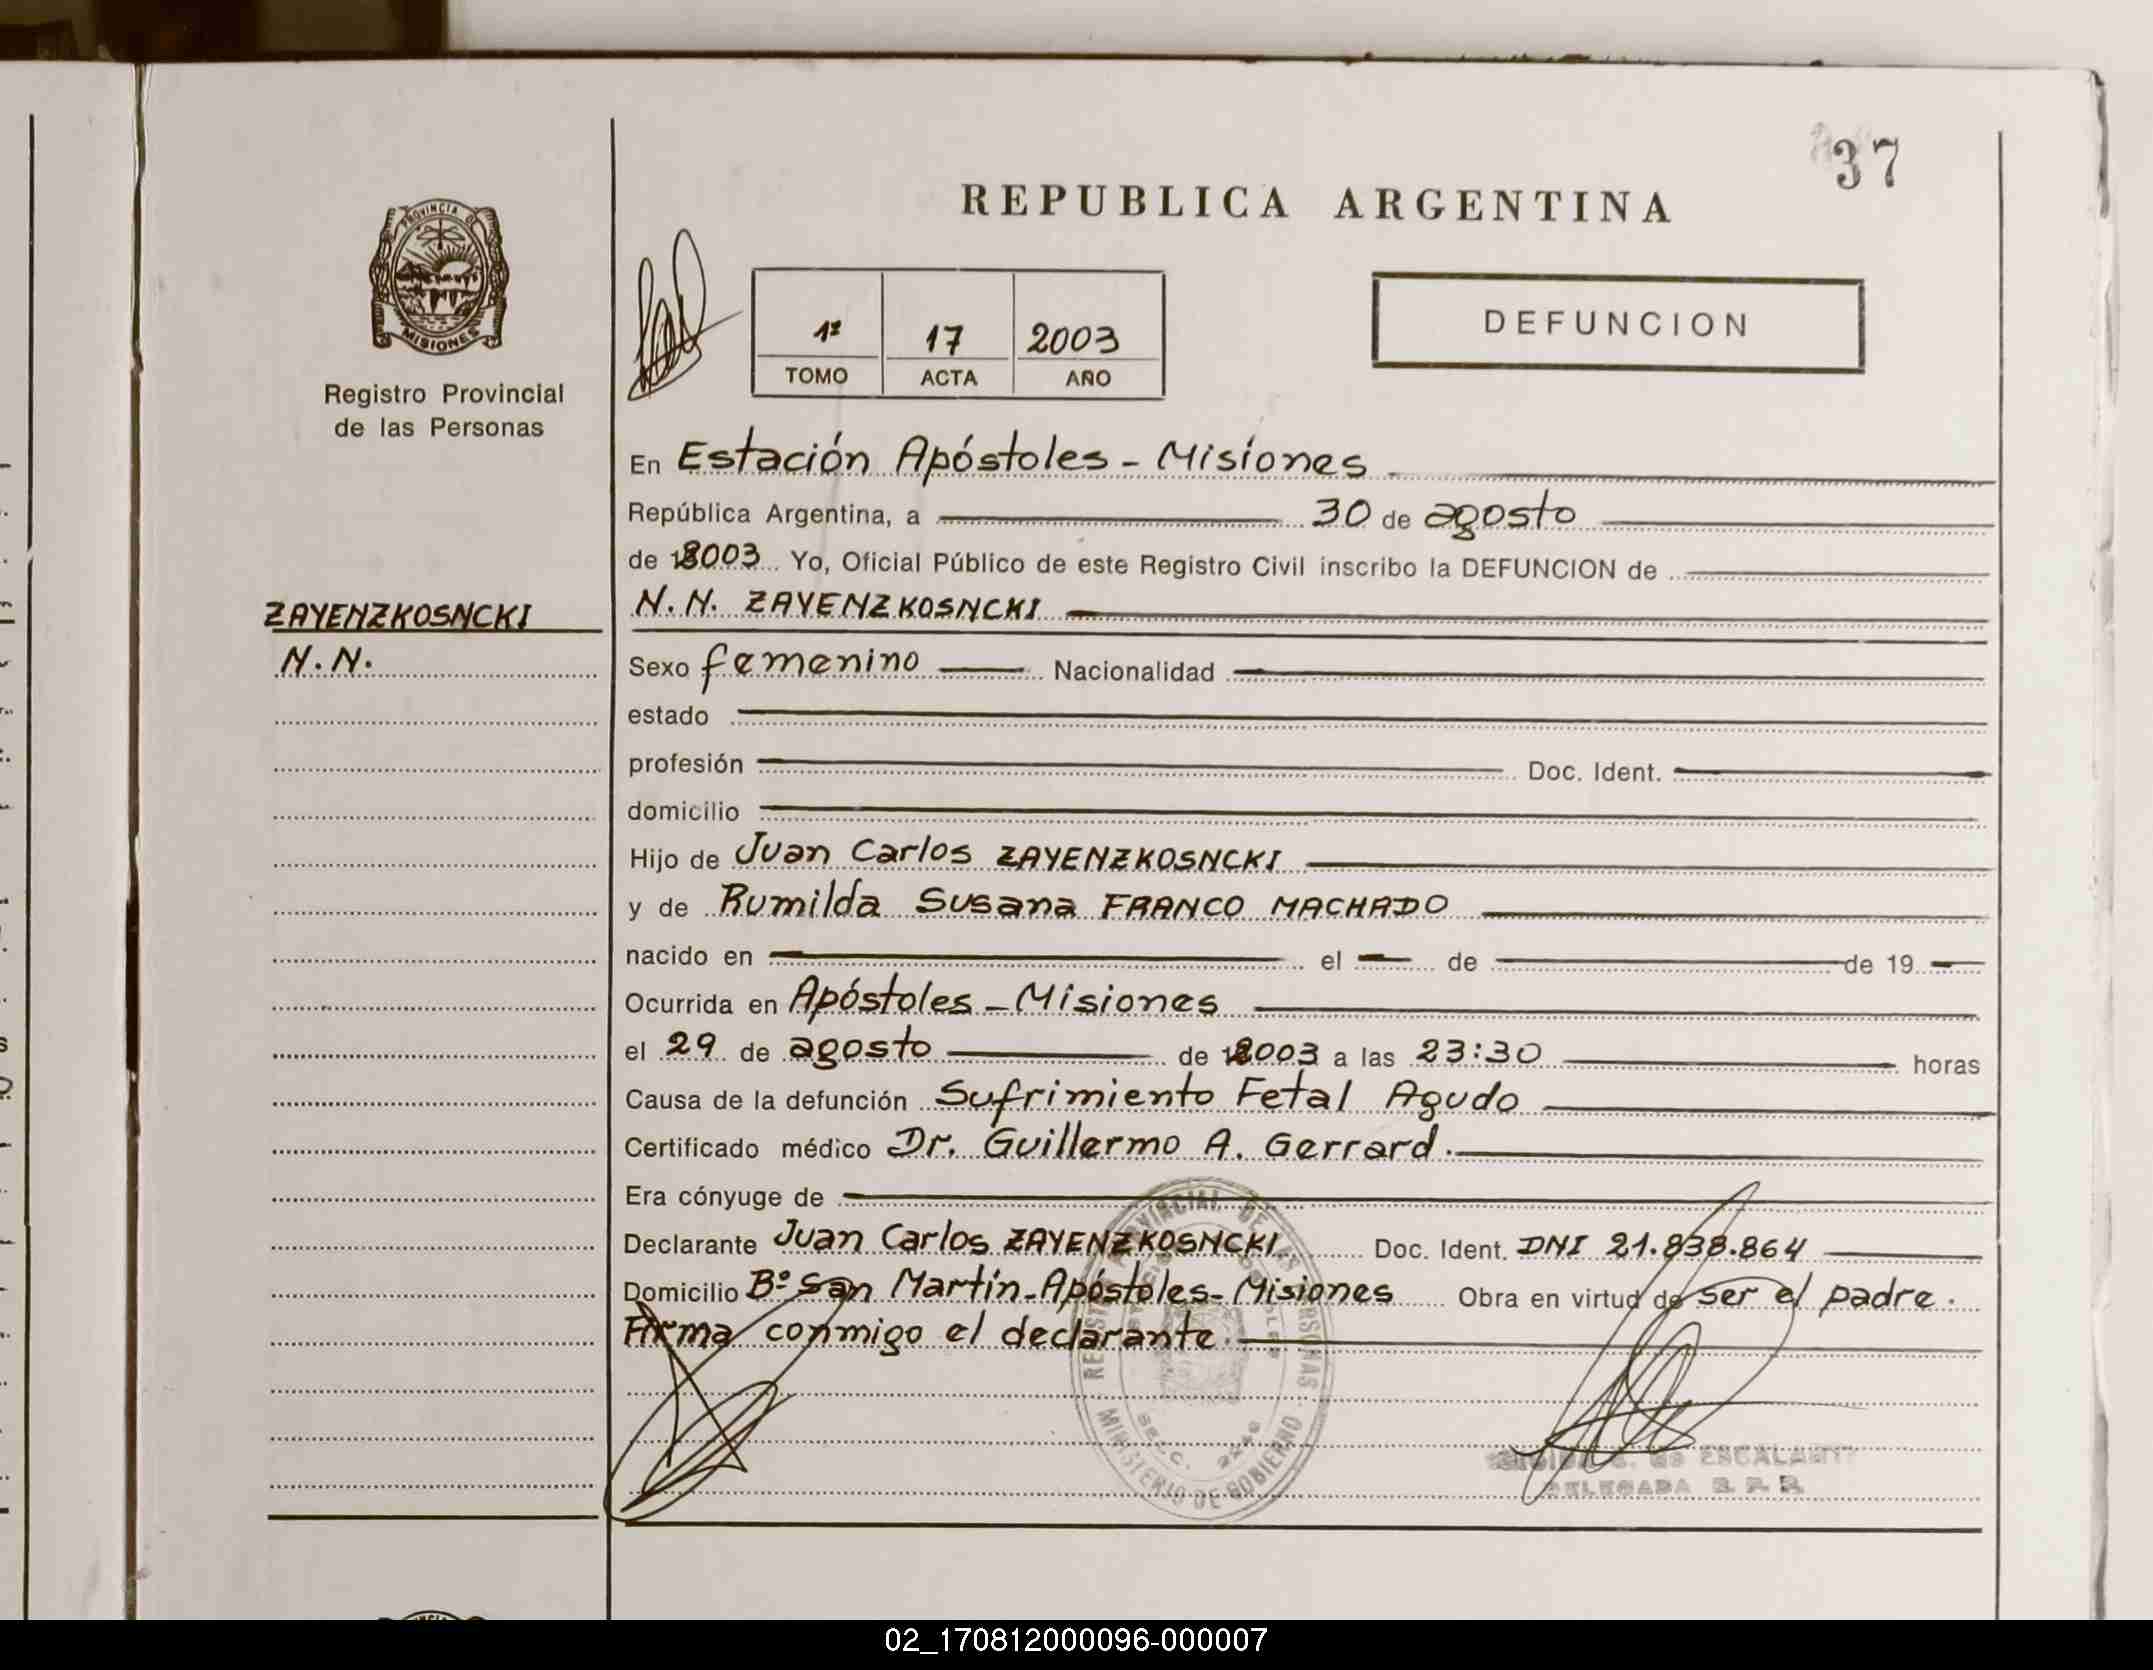 37
REPUBLICA ARGENTINA
PROVINCIA DE
MISIONES
Registro Provincial
de las Personas
1º 17 2003
TOMO ACTA AÑO
DEFUNCION
En Estación Apóstoles - Misiones
República Argentina, a 30 de agosto
de 2003 Yo, Oficial Público de este Registro Civil inscribo la DEFUNCION de
ZAYENZKOSNCKI
N.N.
N.N. ZAYENZKOSNCKI
Sexo femenino Nacionalidad
estado
profesión Doc. Ident.
domicilio
Hijo de Juan Carlos ZAYENZKOSNCKI
y de Rumilda Susana FRANCO MACHADO
nacido en el de de 19
Ocurrida en Apóstoles - Misiones
el 29 de agosto de 2003 a las 23:30 horas
Causa de la defunción Sufrimiento Fetal Agudo
Certificado médico Dr. Guillermo A. Gerrard.
Era cónyuge de
Declarante Juan Carlos ZAYENZKOSNCKI Doc. Ident. DNI 21.838.864
Domicilio Bº San Martín - Apóstoles - Misiones Obra en virtud de ser el padre.
Firma conmigo el declarante.
MINISTERIO DE GOBIERNO
ESCALANTE
DELEGADA R. P. P.
02_170812000096-000007